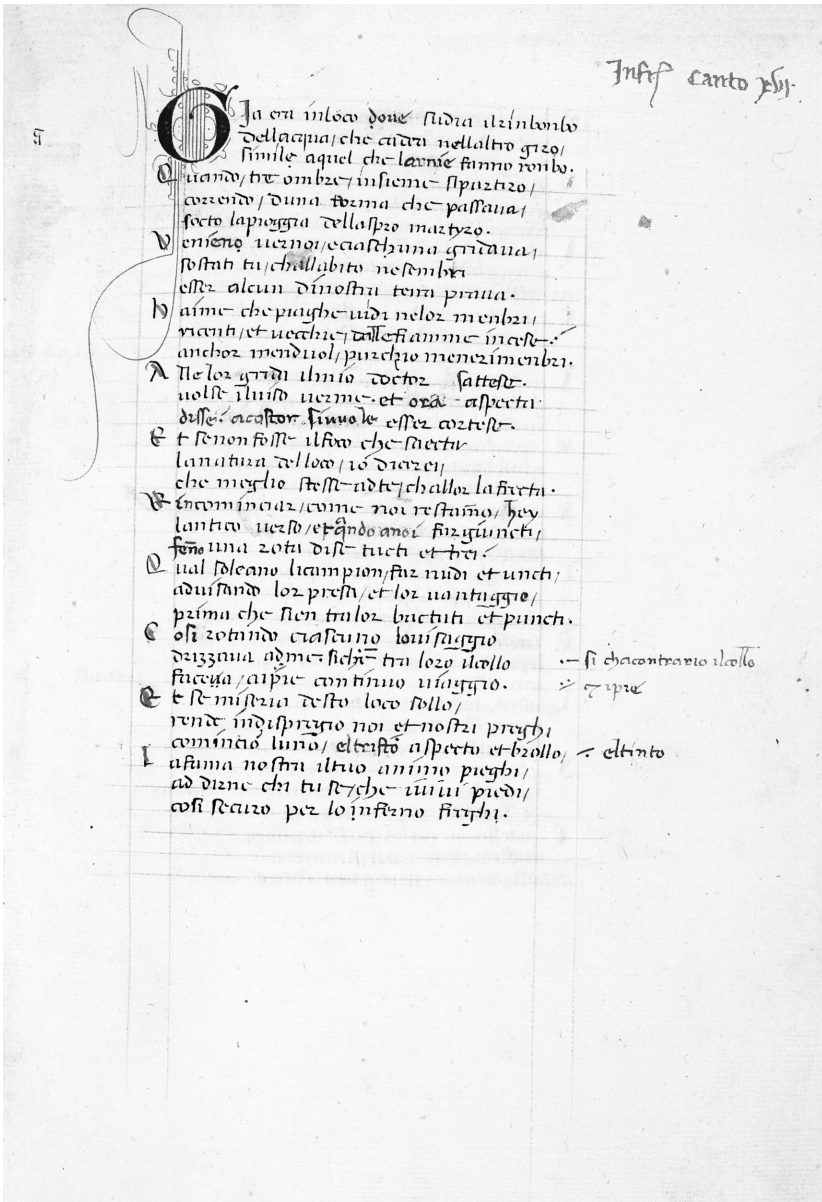 Infer̄ Canto xvi.
Gia era inloco doue sudia ilrinbonbo
dellacqua, che cadea nellaltro giro,
simile aquel che larnie fanno ronbo.
Quando, tre ombre, insieme sipartiro,
correndo, duna torma che passaua,
socto lapioggia dellaspro martyro.
Venieno uernoi, eciaschuna gridaua,
sostati tu, challabito nesembri
esser alcun dinostra terra praua.
haime che piaghe uidi nelor menbri,
ricenti, et uecchie, dalle fiamme incese.
anchor menduol, purchio menerimenbri.
Alle lor gridi ilmio doctor sattese.
uolse iluiso uerme. et ora aspecta
disse. acostor sinuole esser cortese.
Et senon fosse ilfoco che saecta
lanatura delloco, io dicerei,
che meglio stesse adte, challor lafrecta.
Rincominciar, come noi restam̄o, hey
lantico uerso, et qn̄do anoi fur giuncti,
fen̄o una rota dise tucti et trei.
Qual soleano licampion, far nudi et uncti,
aduisando lor presa, et lor uantaggio,
prima che sien tralor bactuti et puncti.
Cosi rotando ciascuno louisaggio
drizzaua adme. sichē tra loro ilcollo .– si chacontrario ilcollo
faceua, aipie continuo uiaggio. et ipie
Et se miseria desto loco sollo,
rende indispregio noi et nostri preghi
cominciò luno, eltristo aspecto et brollo, eltinto
Lafama nostra iltuo animo pieghi,
ad dirne chi tu se, che iuiui piedi,
cosi securo per lo inferno freghi.